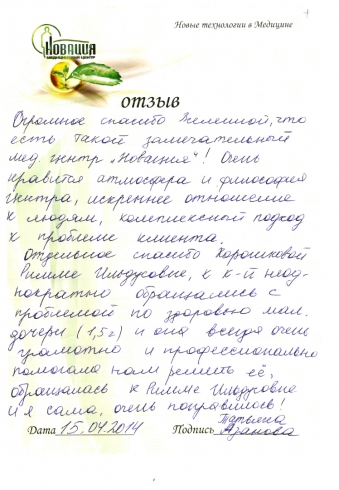 Новые технологии в Медицине
НОВАЦИЯ
МЕДИЦИНСКИЙ ЦЕНТР
ОТЗЫВ
Огромное спасибо Вселенной, что
есть такой замечательный
мед. центр „Новация"! Очень
нравится атмосфера и философия
центра, искреннее отношение
к людям, комплексный подход
к проблеме клиента.
Отдельное спасибо Хорошковой
Римме Ильдусовне, к к-й неод-
нократно обращались с
проблемой по здоровью мал.
дочери (1,5г) и она всегда очень
грамотно и профессионально
помогала нам решить её,
обращалась к Римме Ильдусовне
и я сама, очень понравилось!
Татьяна
Дата 15.04.2014 Подпись Азанова